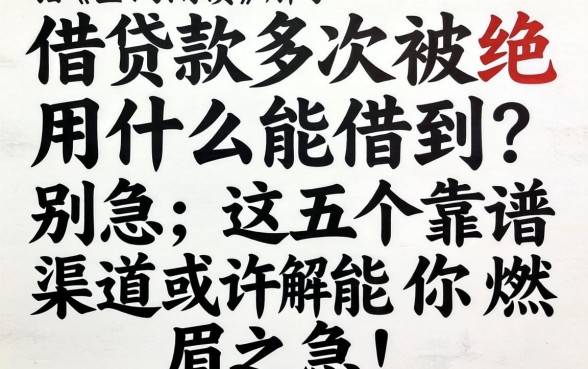 借贷款多次被绝
用什么能借到?
别急；这五个靠谱
渠道或许解能你燃
眉之急!